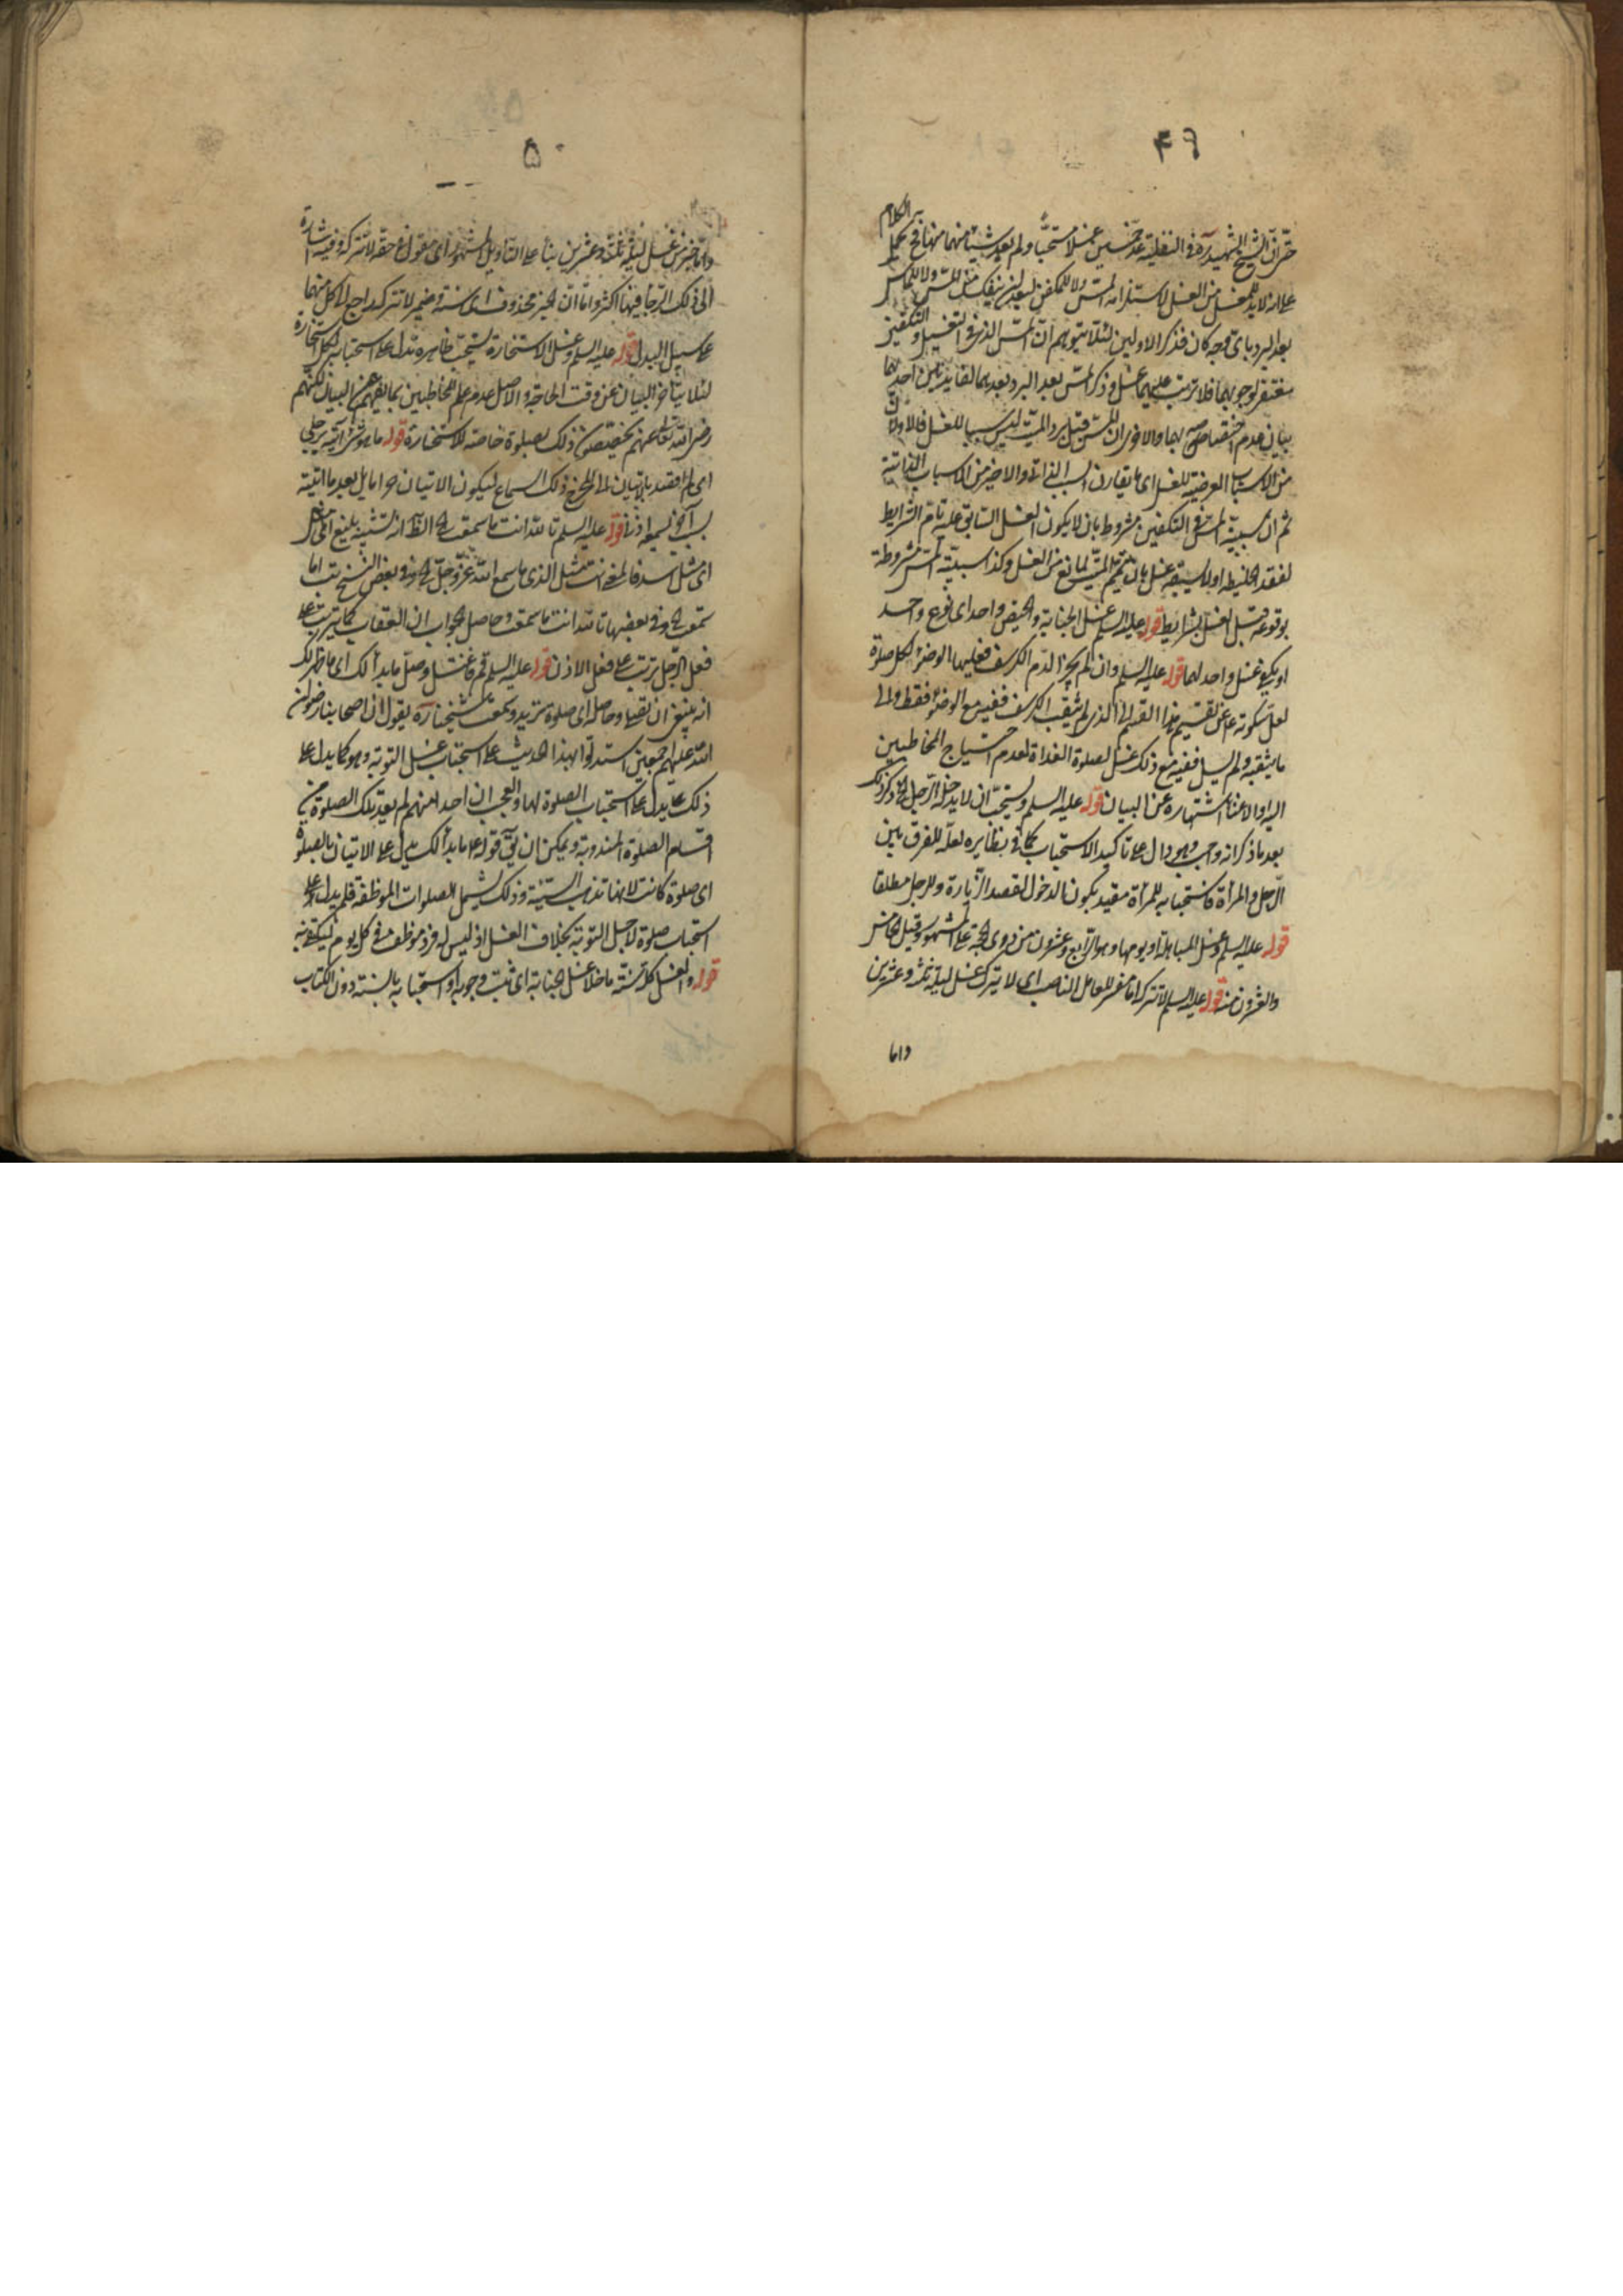 ۴۹
حتى ان الشيخ الشهيد ره في النفلية عد خمسين غسلا مستحبا ولم يعد شيئا منهما منها فح يحمل الكلام
على انه لابد للمغسل من الغسل لاستلزامه المس ولا للمكفن
بعد البرد باى وجه كان فذكر الاولين لئلا يتوهم ان المس الذى في التغسيل والتكفين
مغتفر لوجوبهما فلا يترتب عليهما غسل وذكر المس بعد البرد بعدهما لفايدتين احدهما
بيان عدم اختصاصه بهما والاخرى ان المس قبل برد الميت ليس سببا للغسل فالاولان
من الاسباب العرضية للغسل اى ما يقارن السبب الذاتى والاخير من الاسباب الذاتية
ثم ان سببية المس في التكفين مشروط بان لا يكون الغسل السابق عليه تام الشرايط
لفقد الخليط او لا يسبقه غسل بان تيمم الميت لمانع من الغسل وكذا سببية المس مشروطة
بوقوعه قبل الغسل بشرايط قوله عليه السلم غسل الجنابة والحيض واحد اى نوع واحد
او يكفى غسل واحد لهما قوله عليه السلم وان لم يجز الدم الكرسف فعليها الوضوء لكل صلوة
لعل سكوته ع عن تقسيم هذا القسم الى الذى لم يثقب الكرسف ففيه مع الوضوء فقط والى
ما يثقبه ولم يسل ففيه مع ذلك غسل لصلوة الغداة لعدم احتياج المخاطبين
اليه والاغناء اشتهاره عن البيان قوله عليه السلم ويستحب ان لا يدخله الرجل الخ ذكر ذلك
بعد ما ذكر انه واجب وهو دال على تاكيد الاستحباب كما في نظايره لعله للفرق بين
الرجل والمرأة فاستحبابه للمرأة مقيد بكون الدخول لقصد الزيارة وللرجل مطلقا
قوله عليه السلم وغسل المباهلة او يومها وهو الرابع وعشرون من ذوى الحجة على المشهور وقيل الخامس
والعشرون منه قوله عليه السلم لا تتركها مفسر للعامل الناصب اى لا يترك غسل ليلة ثلث وعشرين
واما
۵۰
واما خبر عن غسل ليلة ثلثة وعشرين بناء على التاويل المشهور اى مقول في حقه لا تتركه وفيه اشارة
الى ذلك الرجاء فيها اكثر واما ان الخبر محذوف اى سنة وضمير لا تتركه راجع الى كل منهما
على سبيل البدل قوله عليه السلم وغسل الاستخارة يستحب ظاهره تدل على استحبابه لكل استخارة
لئلا يتاخر البيان عن وقت الحاجة والاصل عدم علم المخاطبين بما يغنيهم عن البيان لكنهم
رضى الله تعالى عنهم يخصصون ذلك بصلوة خاصة للاستخارة قوله ما هو شئ آتيه برجلى
اى لم اقصد بالاتيان الى المخرج ذلك السماع ليكون الاتيان حراما بل بعد ما اتيته
بسبب آخر اسمعه اذنى قوله عليه السلم تالله انت ما سمعت الخ الظ انه تشبيه بليغ اى
اى مثل اسد فالمعنى انت مثل الذى ما سمع الله عز وجل الخ وفي بعض النسخ تب اما
سمعت الخ وفي بعضها تالله انت ما سمعت وحاصل الجواب ان العقاب كما يترتب على
فعل الرجل يترتب على فعل الاذن قوله عليه السلم قم فاغتسل وصل ما بدا لك اى ما ظهر لك
انه ينبغى ان تصليه وحاصله اى صلوة تريد وسمعت شيخنا ره يقول ان اصحابنا رضوان
الله عليهم اجمعين استدلوا بهذا الحديث على استحباب غسل التوبة وهو كما يدل على
ذلك يدل على استحباب الصلوة لها والعجب ان احدا منهم لم يعد تلك الصلوة من
اقسام الصلوة المندوبة ويمكن ان يق قوله ع ما بدا لك يدل على الاتيان بالصلوة
اى صلوة كانت لانها تذهب السيئة وذلك يشمل الصلوات الموظفة فلم يدل على
استحباب صلوة لاجل التوبة بخلاف الغسل اذ ليس له فرد موظف في كل يوم ليكتفى به
قوله والغسل كله سنة ما خلا غسل الجنابة اى ثبت وجوبه او استحبابه بالسنة دون الكتاب